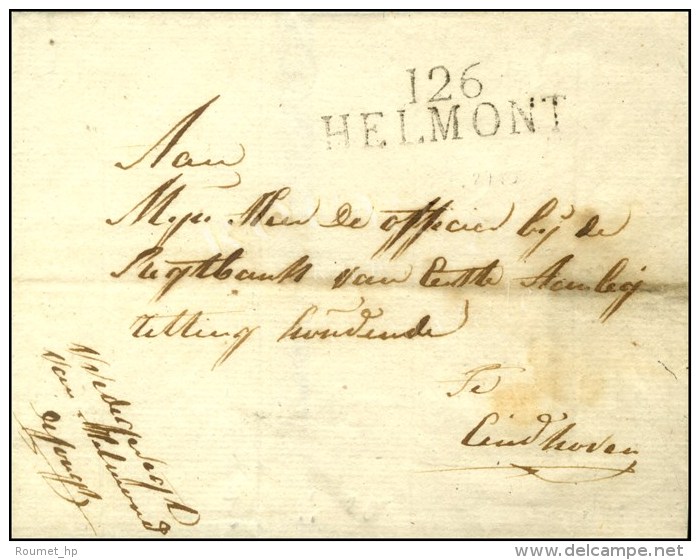 126
HELMONT
Aan
Mijn Heer de officier bij de
Regtbank van Eerste Aanleg
zitting houdende
Te
Eindhoven
Vrederegt
van Helmond
Roumet_hp
©delcampe.net